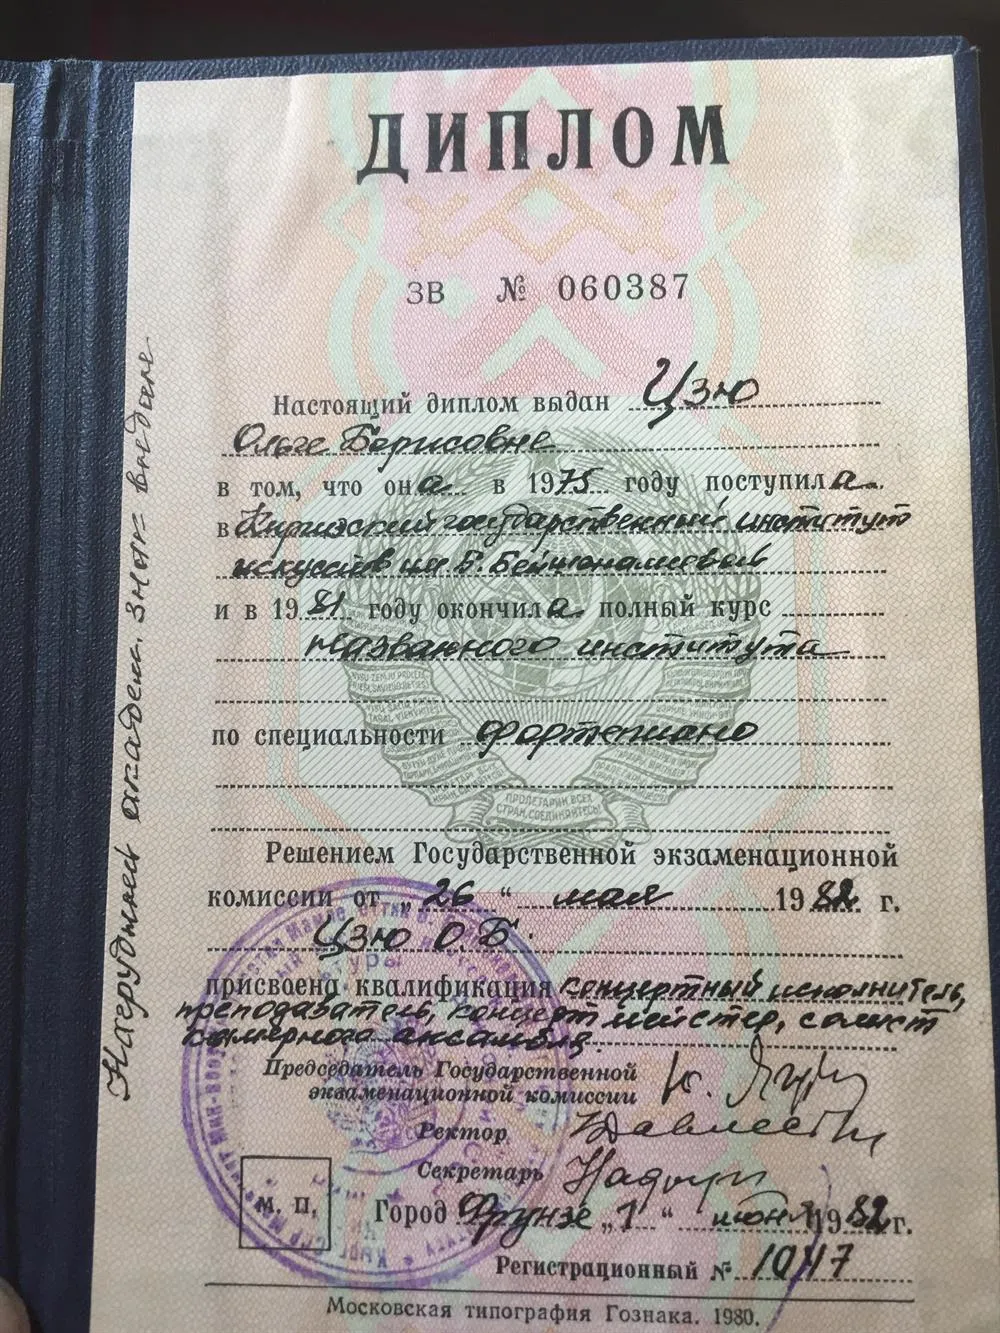 ДИПЛОМ
ЗВ № 060387
Настоящий диплом выдан Цзю
Ольге Борисовне
в том, что она в 1975 году поступила
в Киргизский государственный институт
искусств им Б. Бейшеналиевой
и в 1981 году окончила полный курс
названного института
по специальности фортепиано
ПРОЛЕТАРИИ ВСЕХ
СТРАН, СОЕДИНЯЙТЕСЬ!
Решением Государственной экзаменационной
комиссии от „26“ мая 1982 г.
Цзю О.Б.
присвоена квалификация концертный исполнитель,
преподаватель, концертмейстер, солист
камерного ансамбля.
Председатель Государственной
экзаменационной комиссии
Ректор
Секретарь
М. П.
Город Фрунзе „1“ июня 1982 г.
Регистрационный № 1047
Московская типография Гознака. 1980.
Нагрудный академ. знак выдан.